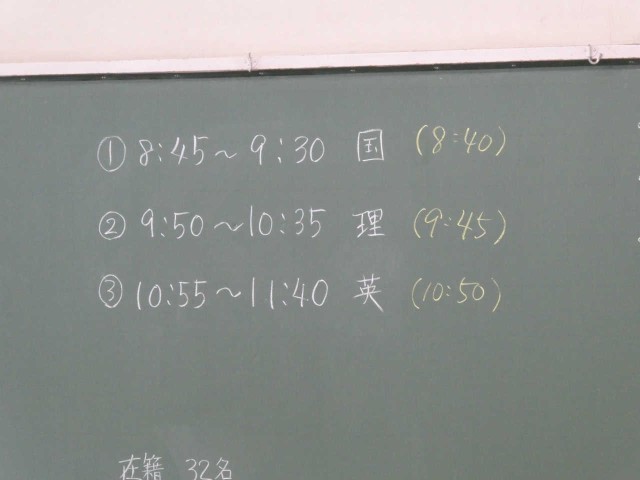 ① 8:45～9:30 国 (8:40)
② 9:50～10:35 理 (9:45)
③ 10:55～11:40 英 (10:50)
在籍 32名